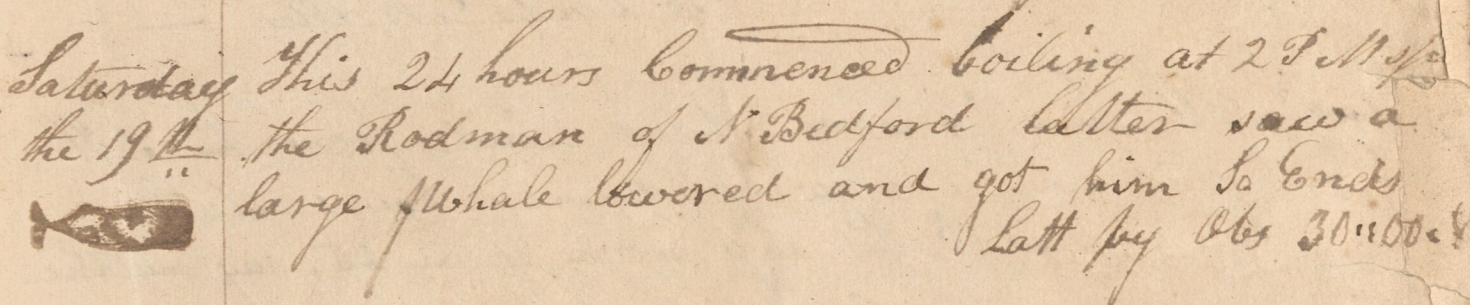 Saturday This 24 hours Commenced boiling at 2 P M
the 19th the Rodman of N Bedford latter saw a
large Whale lowered and got him So Ends
Latt by Obs 30"00